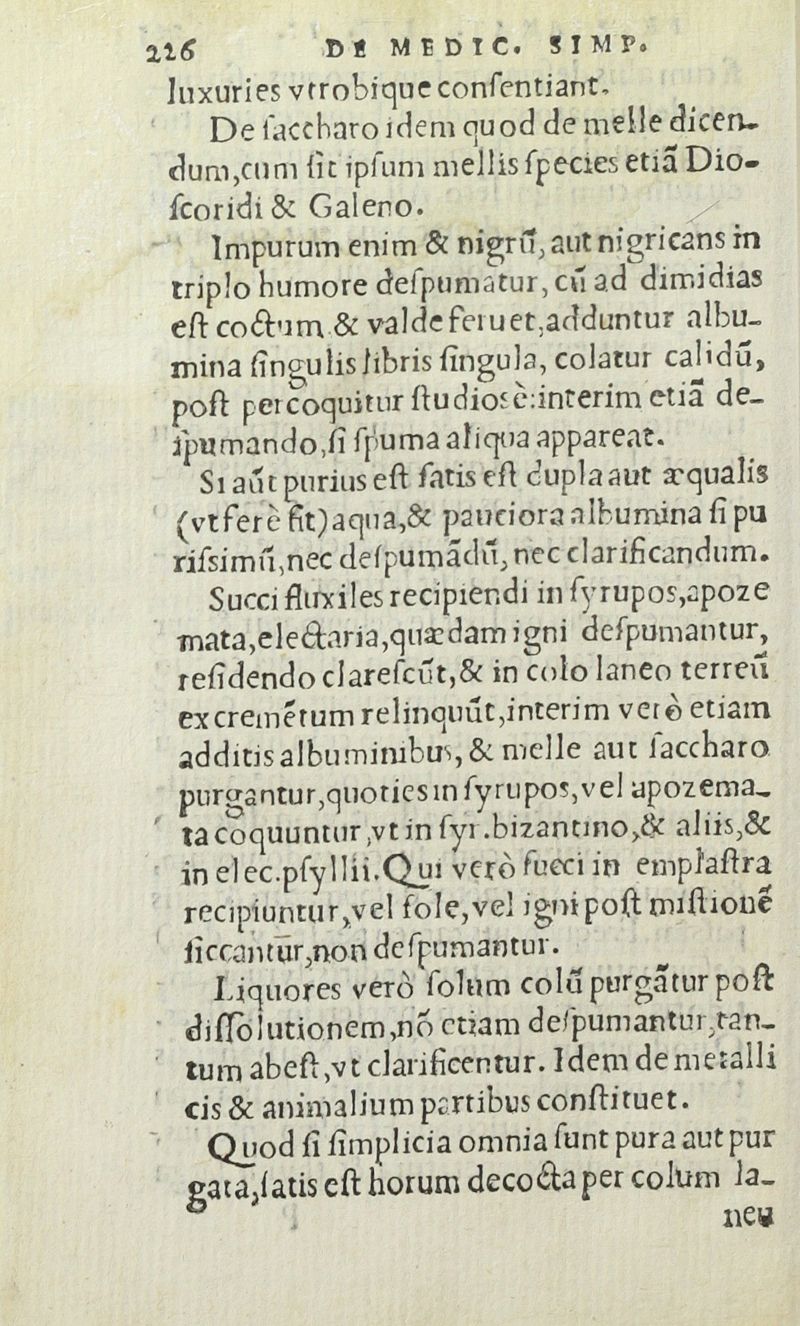 226 DE MEDIC. SIMP.
luxuries vtrobique consentiant.
De saccharo idem quod de melle dicen-
dum, cum sit ipsum mellis species etiã Dio-
scoridi & Galeno.
Impurum enim & nigrũ, aut nigricans in
triplo humore despumatur, cũ ad dimidias
est coctum & valde feruet, adduntur albu-
mina singulis libris singula, colatur calidũ,
post percoquitur studiosè: interim etiã de-
spumando, si spuma aliqua appareat.
Si aũt purius est satis est dupla aut æqualis
(vt ferè fit) aqua, & pauciora albumina si pu
rissimũ, nec despumãdũ, nec clarificandum.
Succi fluxiles recipiendi in syrupos, apoze
mata, electaria, quædam igni despumantur,
residendo clarescũt, & in colo laneo terreũ
excremẽtum relinquũt, interim verò etiam
additis albuminibus, & melle aut saccharo
purgantur, quoties in syrupos, vel apozema-
ta coquuntur, vt in syr. bizantino, & aliis, &
in elec. psyllii. Qui verò succi in emplastra
recipiuntur, vel sole, vel igni post mistionẽ
siccantur, non despumantur.
Liquores verò solum colũ purgãtur post
dissolutionem, nõ etiam despumantur, tan-
tum abest, vt clarificentur. Idem de metalli
cis & animalium partibus constituet.
Quod si simplicia omnia sunt pura aut pur
gata, satis est horum decocta per colum la-
neu